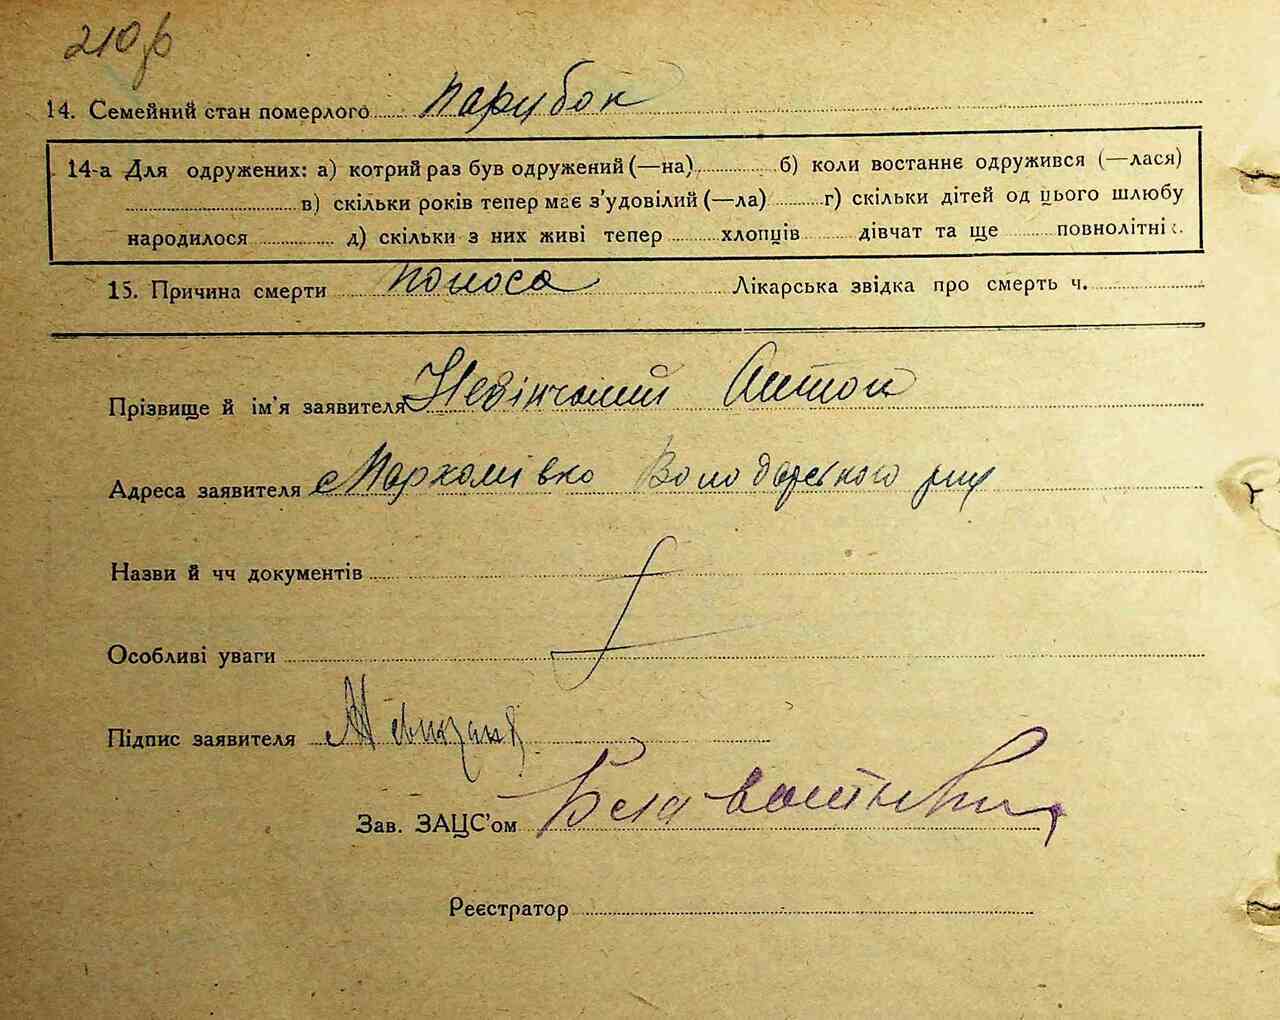 210
14. Семейний стан померлого Парубок
14-а Для одружених: а) котрий раз був одружений (—на) б) коли востаннє одружився (—лася)
в) скільки років тепер має з'удовілий (—ла) г) скільки дітей од цього шлюбу
народилося д) скільки з них живі тепер хлопців дівчат та ще повнолітніх.
15. Причина смерти поноса Лікарська звідка про смерть ч.
Прізвище й ім'я заявителя Невінчаний Антон
Адреса заявителя с Мархалівка Володарського
Назви й чч документів
Особливі уваги
Підпис заявителя
Зав. ЗАЦС'ом
Реєстратор